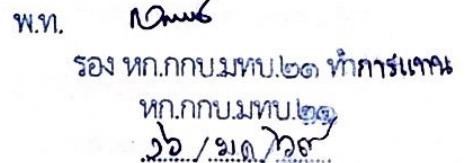 พ.ท.
รอง หก.กกบ.มทบ.๒๑ ทำการแทน
หก.กกบ.มทบ.๒๑
๖ / ม.ค. / ๖๙